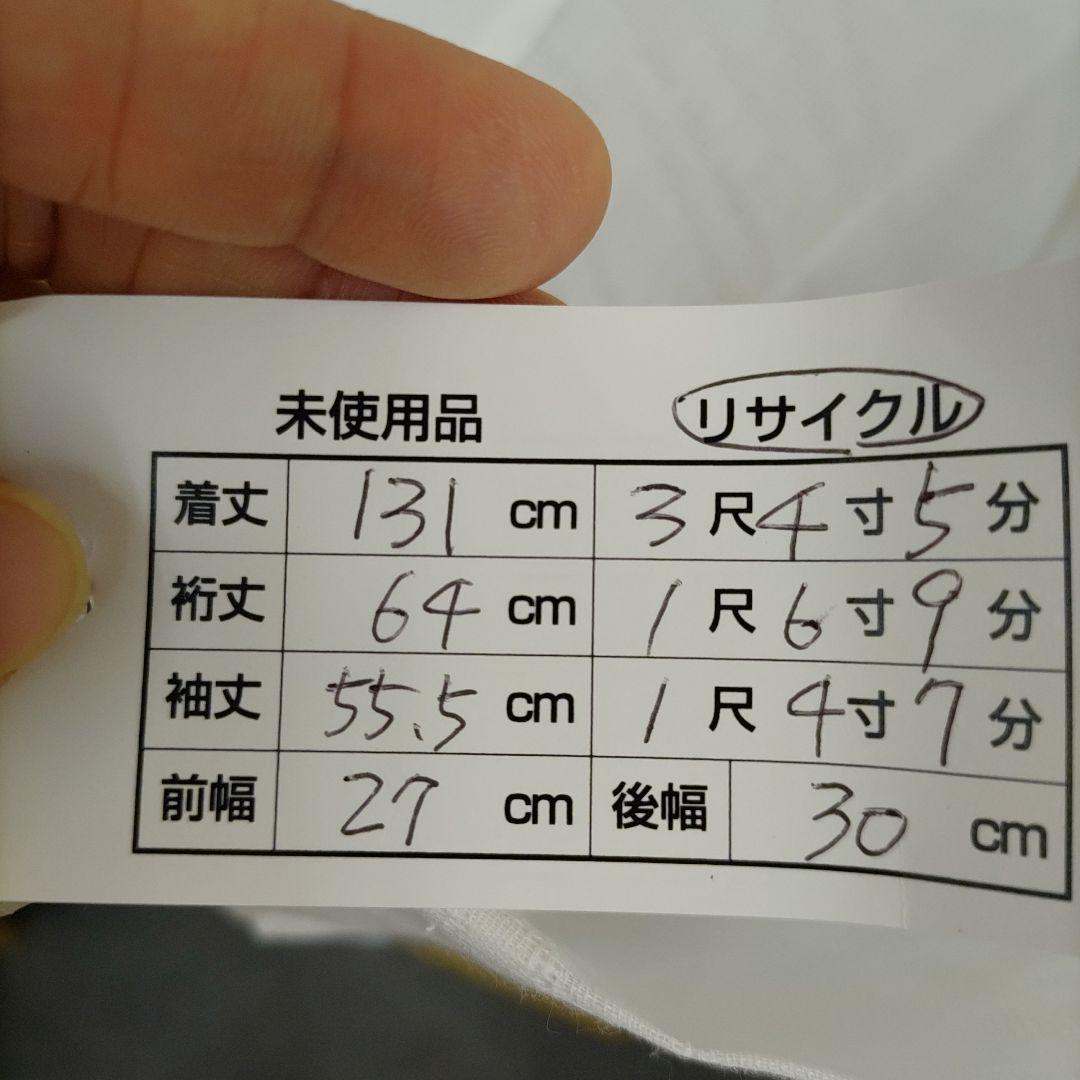 未使用品 リサイクル
着丈 131 cm 3 尺 4 寸 5 分
裄丈 64 cm 1 尺 6 寸 9 分
袖丈 55.5 cm 1 尺 4 寸 7 分
前幅 27 cm 後幅 30 cm